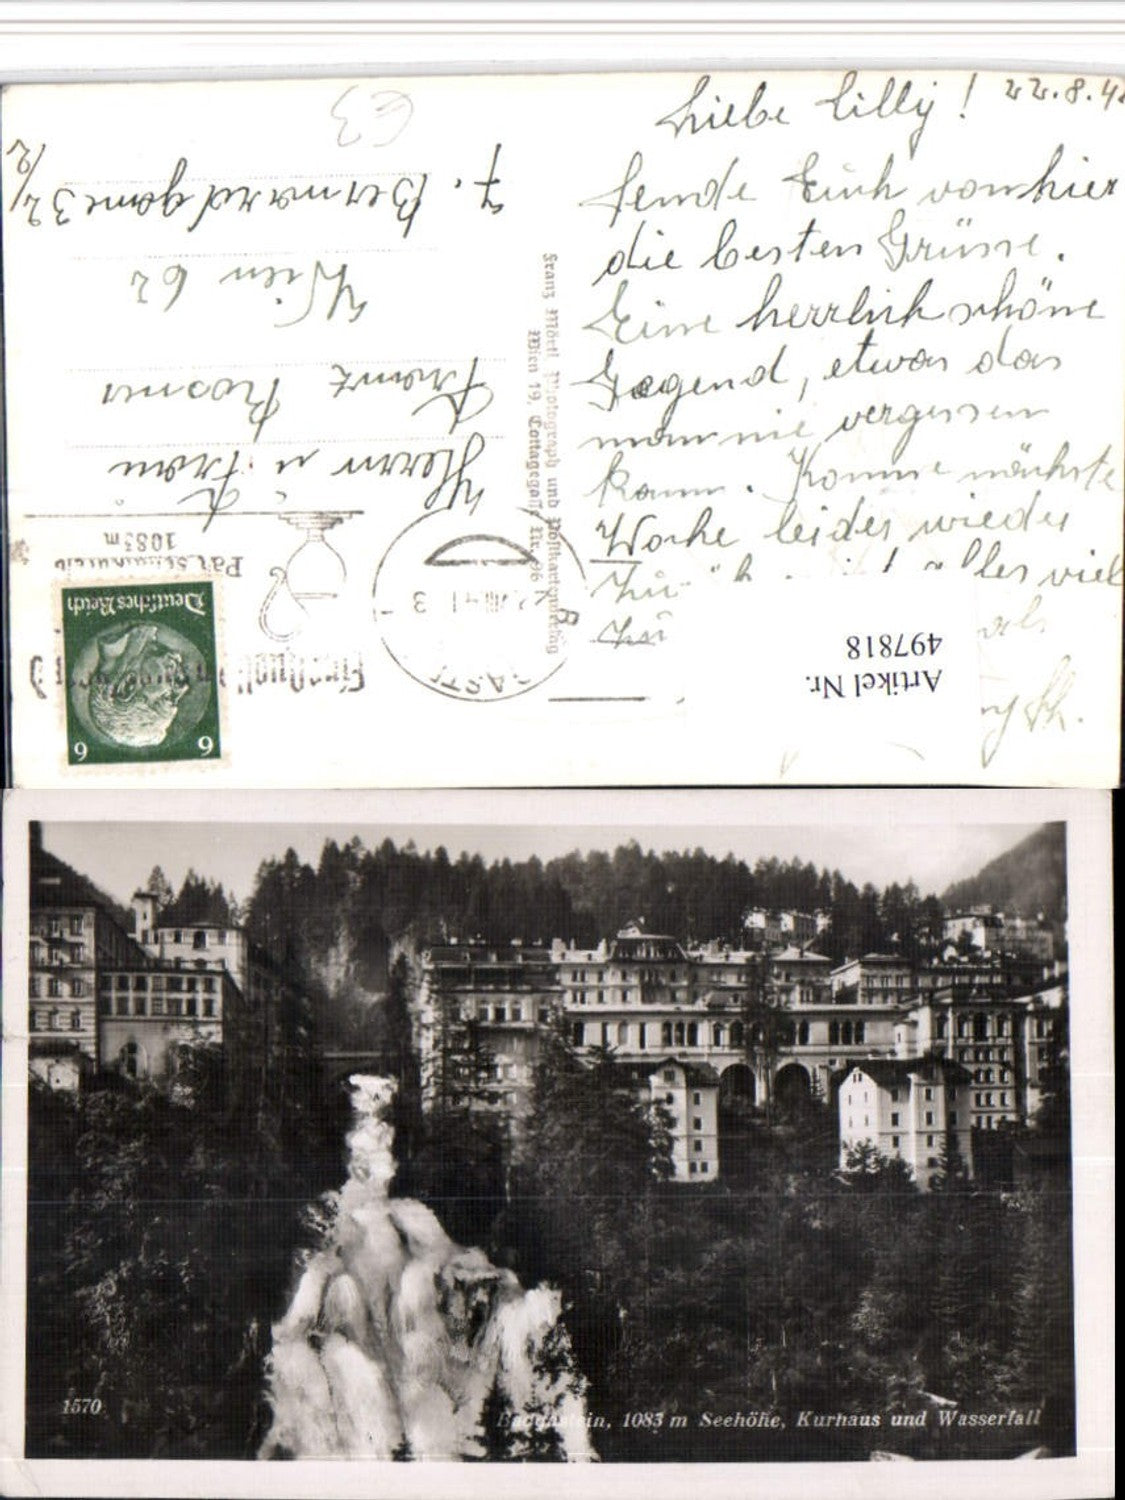 22.8.41
Liebe Lilly!
sende Euch von hier
die besten Grüsse.
Eine herrlich schöne
Gegend, etwas das
man nie vergessen
kann. Komme nächste
Woche leider wieder
viel
Franz Mörtl Photograph und Postkartenverlag
Wien 19, Cottagegasse Nr.
Herrn u. Frau
Franz Rosner
Wien 62
7. Bernardgasse 32/
€3
1083m
GAST
Deutsches Reich
6 6
Artikel Nr.
497818
1570
Badgastein, 1083 m Seehöhe, Kurhaus und Wasserfall